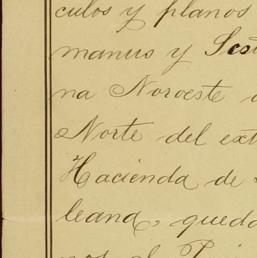 culos y planos
manus y
na Noroeste
Norte del ext
Hacienda de
leana, queda
nos el